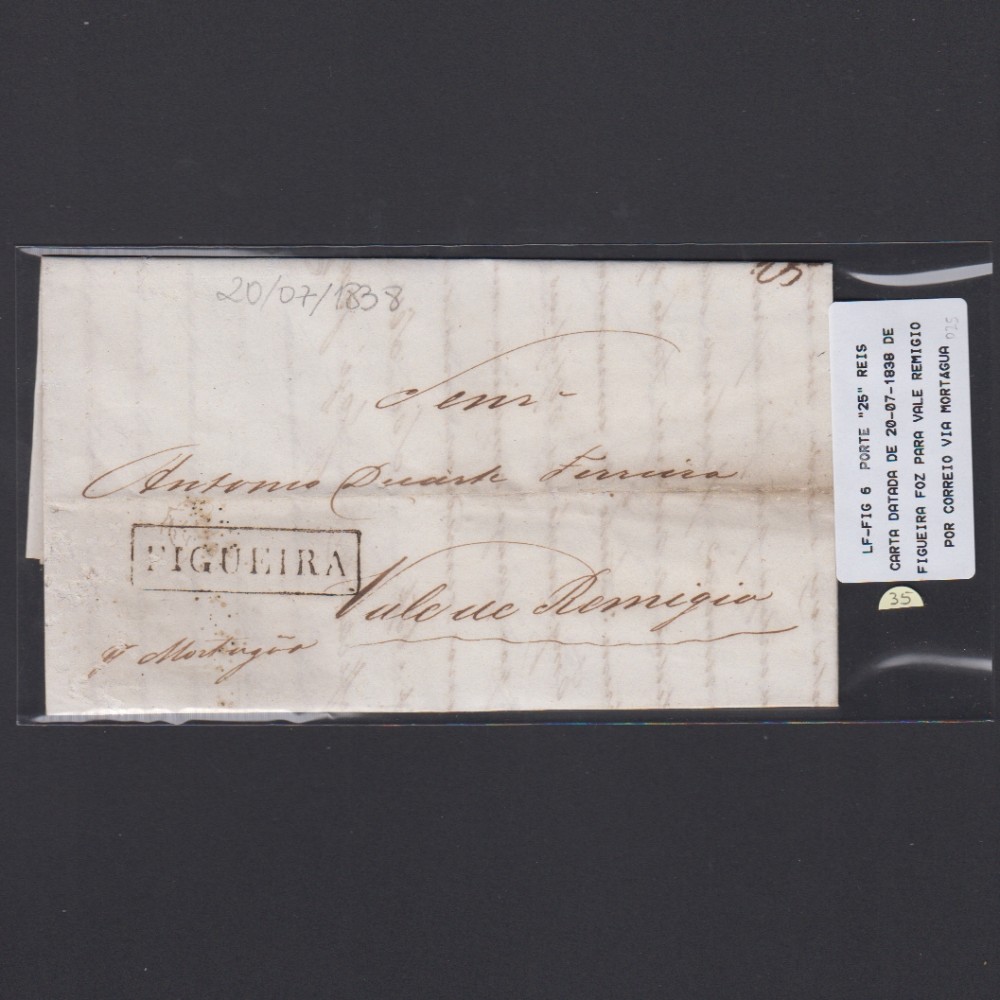 20/07/1838
25
Senr
Antonio Duarte Ferreira
FIGUEIRA
Vale de Remigio
p Mortagoa
LF-FIG 6 PORTE "25" REIS
CARTA DATADA DE 20-07-1838 DE
FIGUEIRA FOZ PARA VALE REMIGIO
POR CORREIO VIA MORTÁGUA
025
35